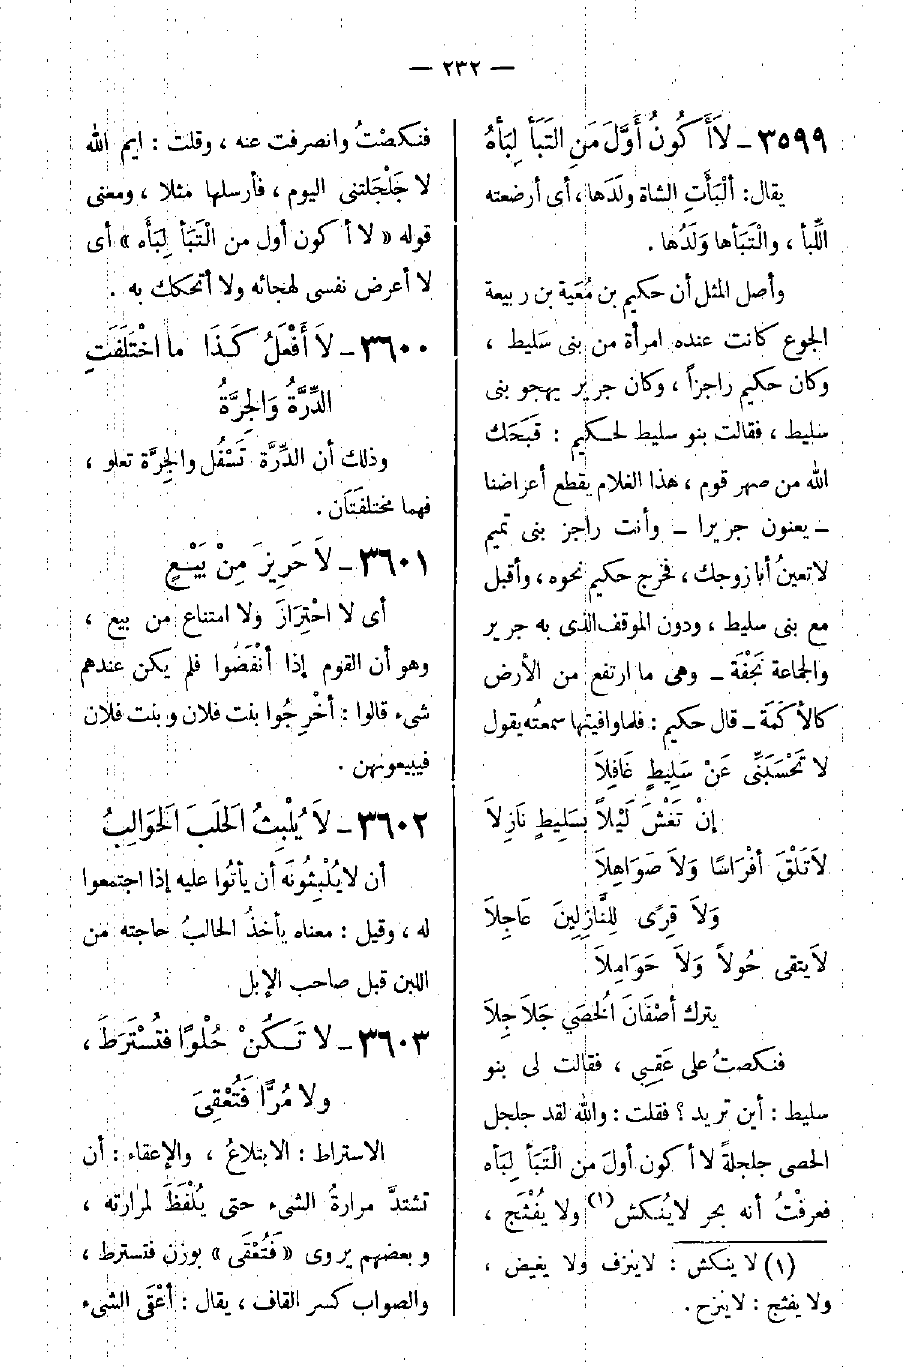 — ٢٣٢ —
٣٥٩٩ – لاَ أَ كُونُ أَوَّلَ مَنِ الْتَبَأَ لِبَأَهُ
يقال: أَلْبَأَتِ الشاة ولَدَها، أى أرضعته
اللِّبأ ، والْتَبَأها وَلَدُها .
وأصل المثل أن حكيم بن مُعَية بن ربيعة
الجوع كانت عنده امرأة من بنى سَليط ،
وكان حكيم راجزاً ، وكان جرير يهجو بنى
سليط ، فقالت بنو سليط لحكيم : قبَحَك
الله من صهر قوم ، هذا الغلام يقطع أعراضنا
– يعنون جريرا – وأنت راجز بنى تميم
لا تعينُ أبا زوجك ، فخرج حكيم نحوه ، وأقبل
مع بنى سليط ، ودون الموقف الذى به جرير
والجماعة نَجْفَة – وهى ما ارتفع من الأرض
كالأ كَمَة – قال حكيم : فلما وافيتها سمعتُه يقول
لا تَحْسَبَنِّى عَنْ سَلِيطٍ غَافِلاَ
إنْ تَغْشَ لَيْلاً بسَلِيطٍ نَازِلاَ
لاَ تَلْقَ أفْرَاسًا وَلاَ صَوَاهِلاَ
وَلاَ قِرًى لِلنَّازِلِينَ عَاجِلاَ
لاَ يتقى حُولاً وَلاَ حَوَامِلاَ
يترك أصْفَانَ الْخُصَي جَلاَجِلاَ
فنكصتُ على عَقِبِى ، فقالت لى بنو
سليط : أين تريد ؟ فقلت : والله لقد جلجل
الحصى جلجلةً لا أ كون أولَ من الْتَبَأ لِبَأه
فعرفْتُ أنه بحر لا يُنكش(١) ولا يُفْثَج ،
(١) لا ينكش : لا ينزف ولا يغيض ،
ولا يفثج : لا ينزح .
فنكصْتُ وانصرفت عنه ، وقلت : ايم الله
لا جَلْجَلتنى اليوم ، فأرسلها مثلا ، ومعنى
قوله « لا أ كون أول من الْتَبَأ لِبَأَه » أى
لا أعرض نفسى لهجائه ولا أتحكك به .
٣٦٠٠ – لاَ أَفْعَلُ كَذَا ما اخْتَلَفَتِ
الدِّرَّةُ وَالْجِرَّةُ
وذلك أن الدِّرَّة تَسْفُل والجِرَّة تعلو ،
فهما مختلفَتَان .
٣٦٠١ – لاَ حَرِيزَ مِنْ بَيْعٍ
أى لا احْتِرَازَ ولا امتناع من بيع ،
وهو أن القوم إذا أنْفَضُوا فلم يكن عندهم
شىء قالوا : أخْرِجُوا بنت فلان وبنت فلان
فيبيعونهن .
٣٦٠٢ – لاَ يُلْبِثُ الْحَلَبَ الْحَوَالِبُ
أن لا يُلْبِثُونَه أن يأتُوا عليه إذا اجتمعوا
له ، وقيل : معناه يأخذُ الحالبُ حاجته من
اللبن قبل صاحب الإبل
٣٦٠٣ – لا تَكُنْ حُلْوًا فتُسْتَرَطَ ،
ولا مُرًّا فَتُعْقِىَ
الاستراط : الابتلاعُ ، والإعقاء : أن
تشتدَّ مرارةُ الشىء حتى يُلْفَظَ لمرارته ،
وبعضهم يروى « فَتُعْقَى » بوزن فتسترط ،
والصواب كسر القاف ، يقال : أعْقَى الشىء